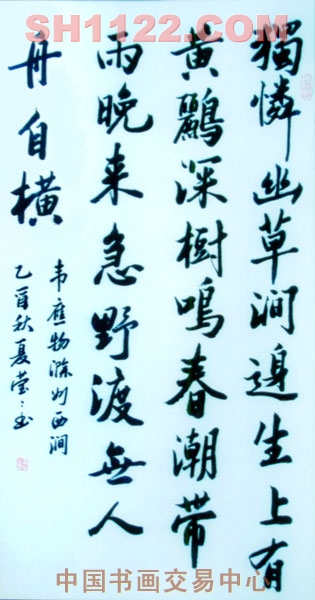 SH1122.COM
獨憐幽草澗邊生上有
黃鸝深樹鳴春潮帶
雨晚来急野渡無人
舟自橫
韦應物滁州西澗
乙酉秋夏莹
中国书画交易中心